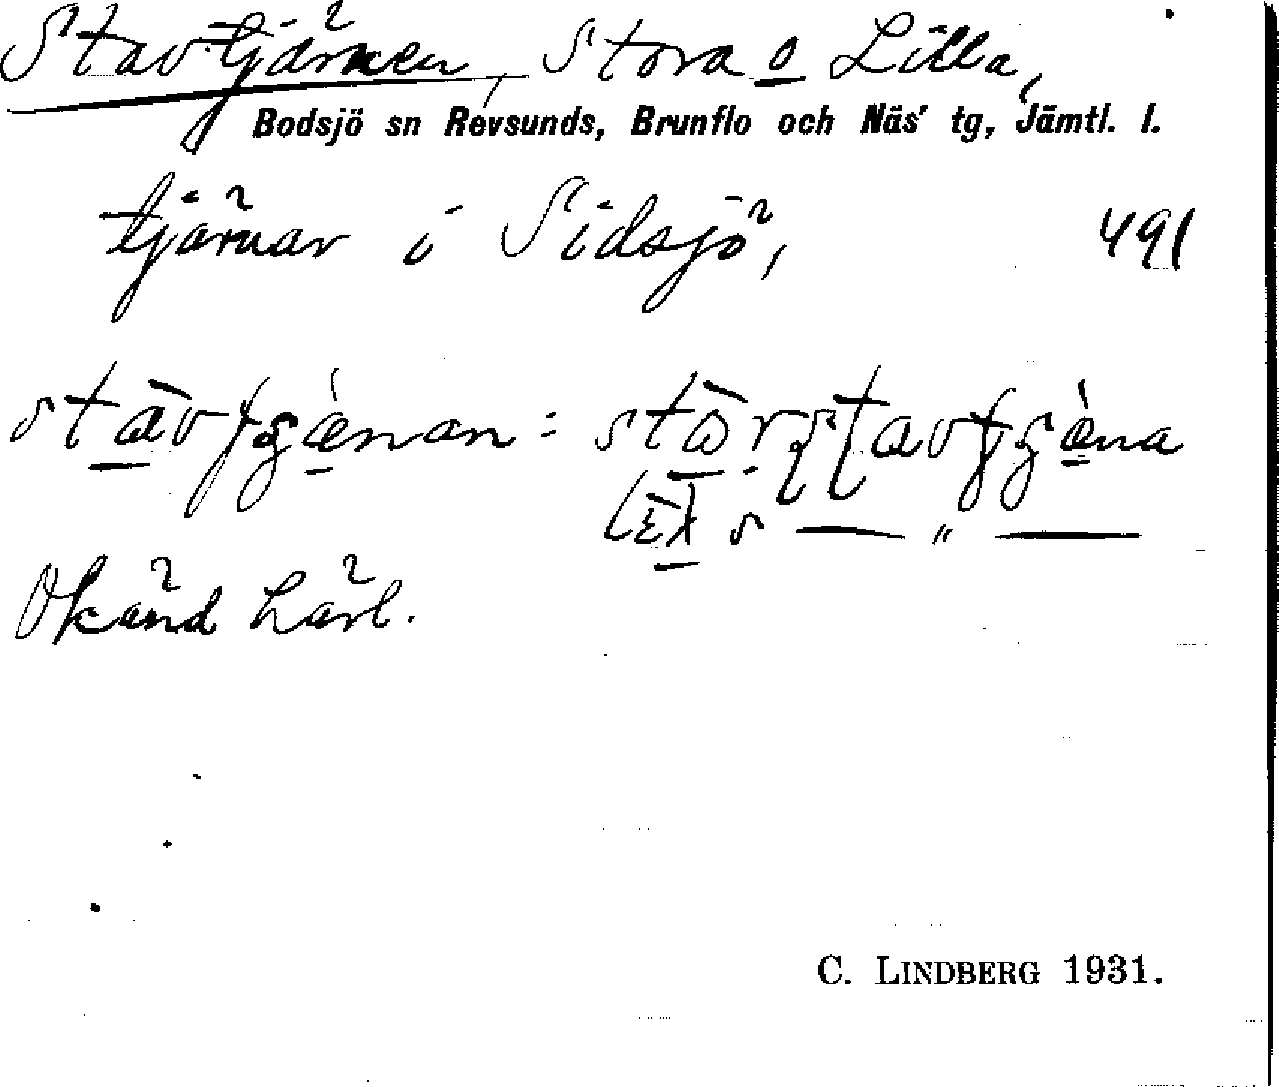 Stavtjärnen, Stora o Lilla,
Bodsjö sn Revsunds, Brunflo och Näs' tg, Jämtl. l.
tjärnar i Sidsjö, 491
Okänd härl.
C. LINDBERG 1931.